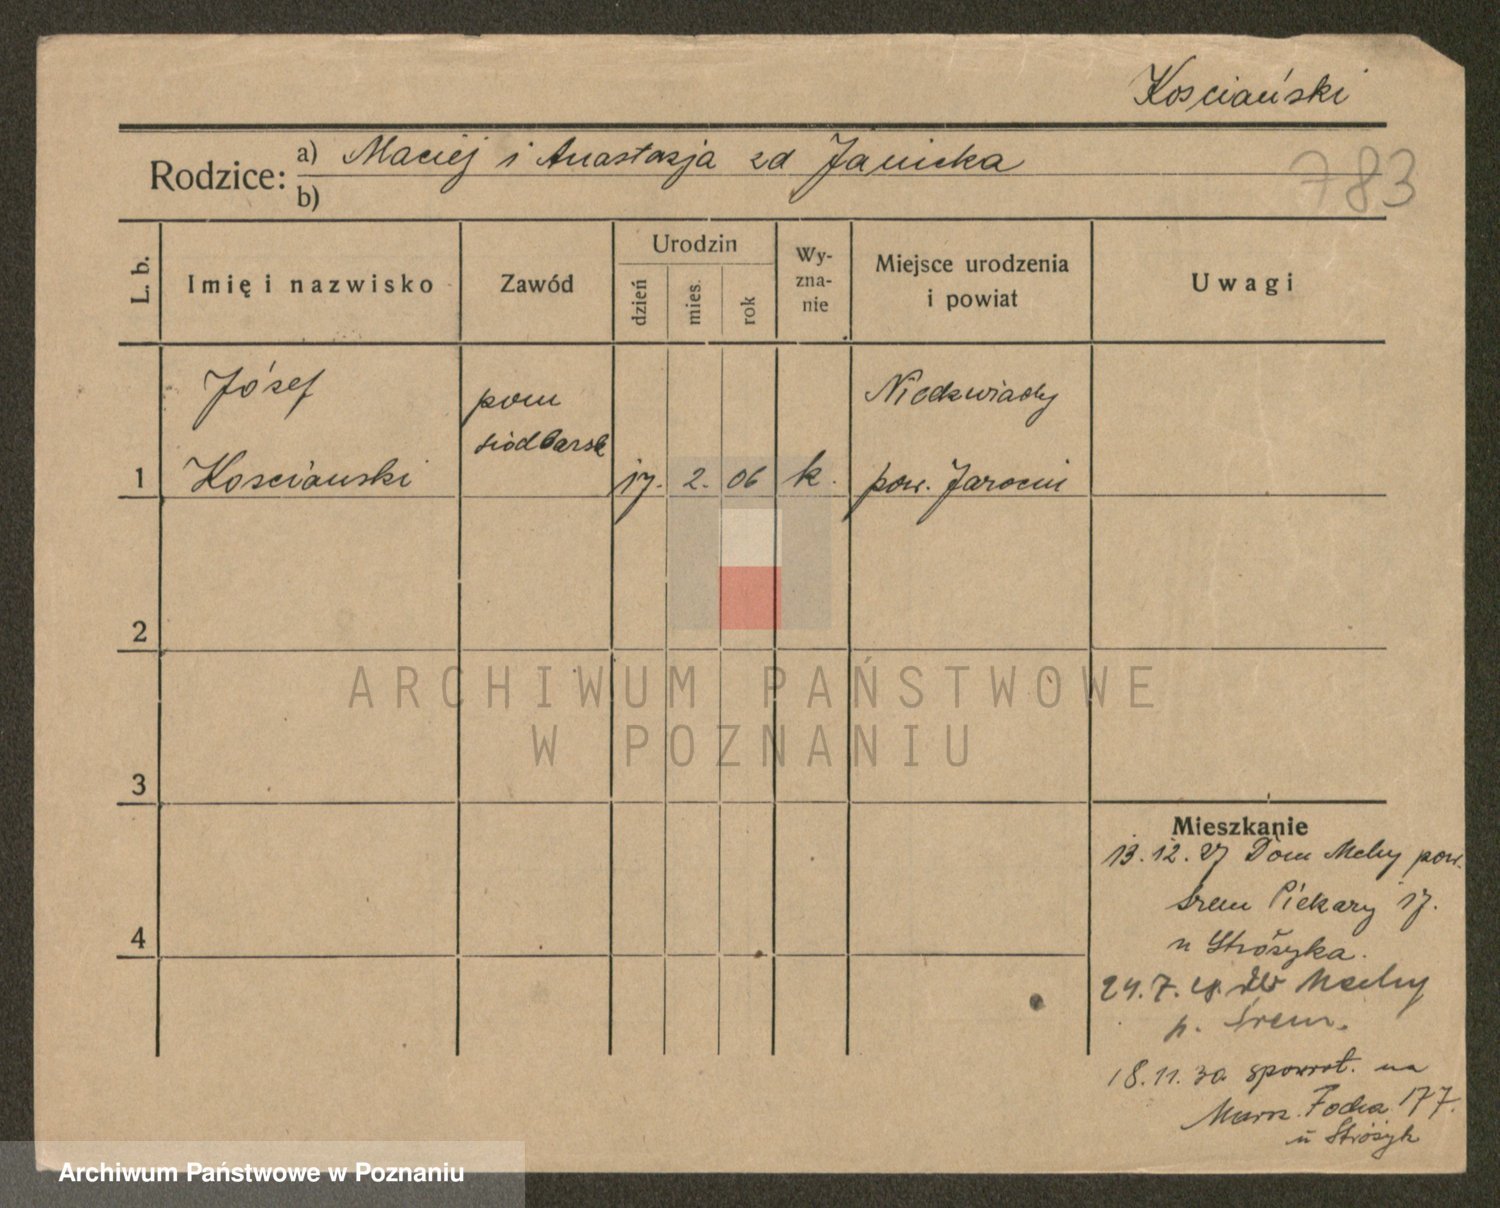 Kosciański
Rodzice: a) Maciej i Anastazja zd Janicka
b)
783
L. b.
Imię i nazwisko
Zawód
Urodzin
dzień
mies.
rok
Wy-
zna-
nie
Miejsce urodzenia
i powiat
Uwagi
1
Józef
Kosciański
pom
siodlarsk
17. 2. 06
k.
Niedzwiady
pow. Jarocin
2
3
4
Mieszkanie
13.12.27 Dom Mchy pow.
Srem Piekary 17.
u Stróżyka.
24.7.28. Mchy
p. Śrem.
18.11.30 spowrot. na
Marsz. Focha 177.
u Stróżyk
ARCHIWUM PAŃSTWOWE
W POZNANIU
Archiwum Państwowe w Poznaniu